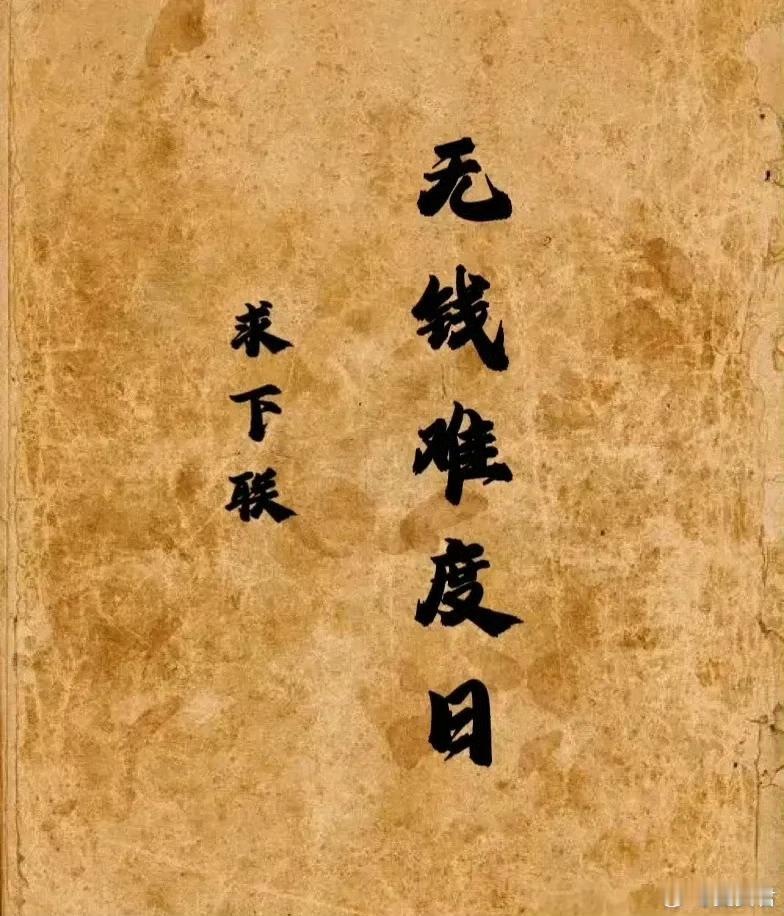 无钱难度日
求下联